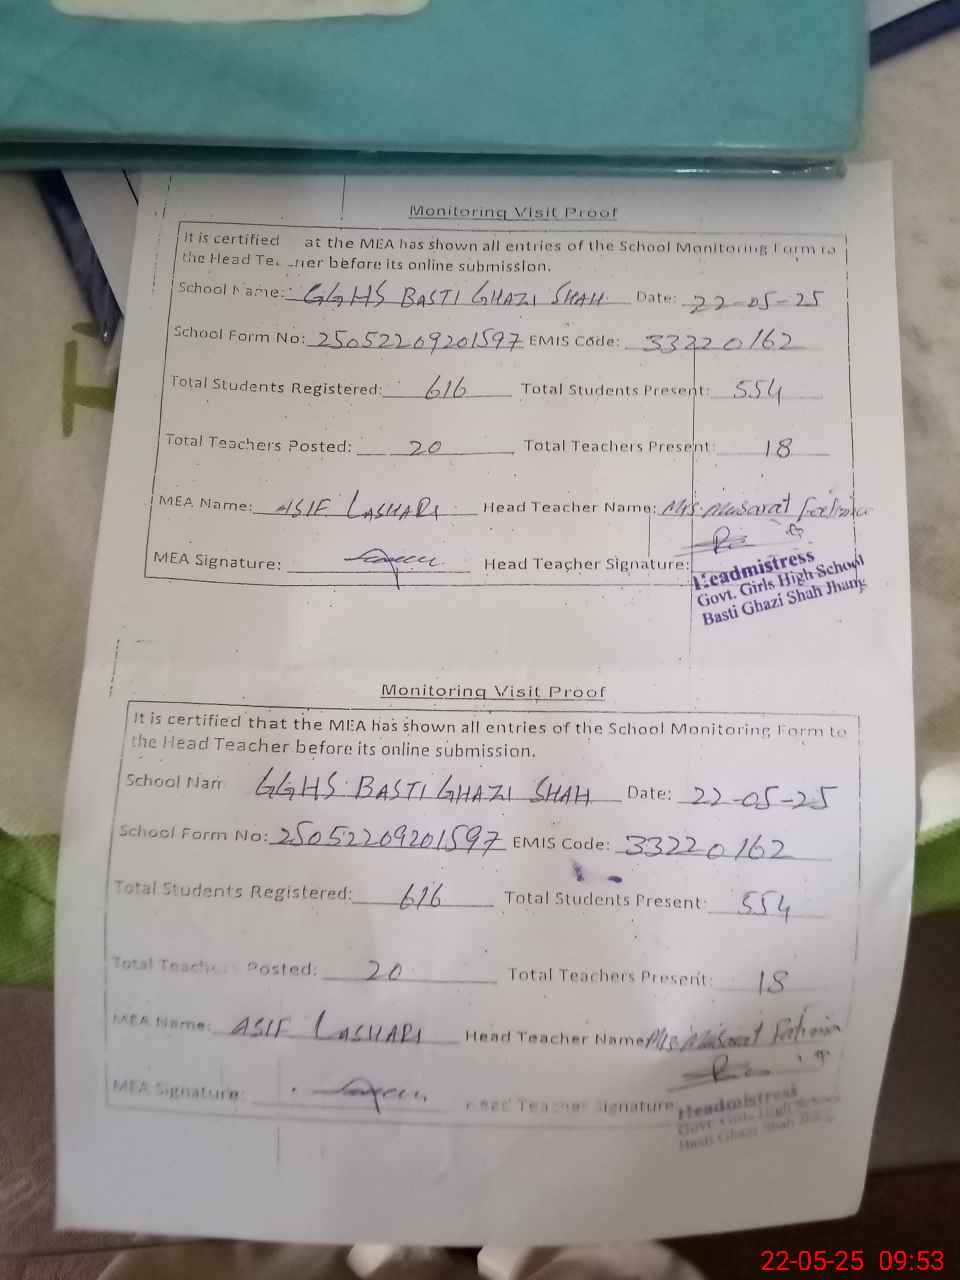 Monitoring Visit Proof
It is certified at the MEA has shown all entries of the School Monitoring Form to
the Head Te. .ner before its online submission.
School Name: GGHS BASTI GHAZI SHAH Date: 22-05-25
School Form No: 25052209201597 EMIS Code: 33220162
Total Students Registered: 616 Total Students Present: 554
Total Teachers Posted: 20 Total Teachers Present: 18
MEA Name: ASIF LASHARI Head Teacher Name: Mrs. Musarat
MEA Signature: Head Teacher Signature:
Headmistress
Govt. Girls High School
Basti Ghazi Shah Jhang
Monitoring Visit Proof
It is certified that the MEA has shown all entries of the School Monitoring Form to
the Head Teacher before its online submission.
School Nam GGHS BASTI GHAZI SHAH Date: 22-05-25
School Form No: 25052209201597 EMIS Code: 33220162
Total Students Registered: 616 Total Students Present: 554
Total Teachers Posted: 20 Total Teachers Present: 18
MEA Name: ASIF LASHARI Head Teacher Name Mrs Musarat
MEA Signature: Head Teacher Signature:
Headmistress
Govt. Girls High School
Basti Ghazi Shah
22-05-25 09:53